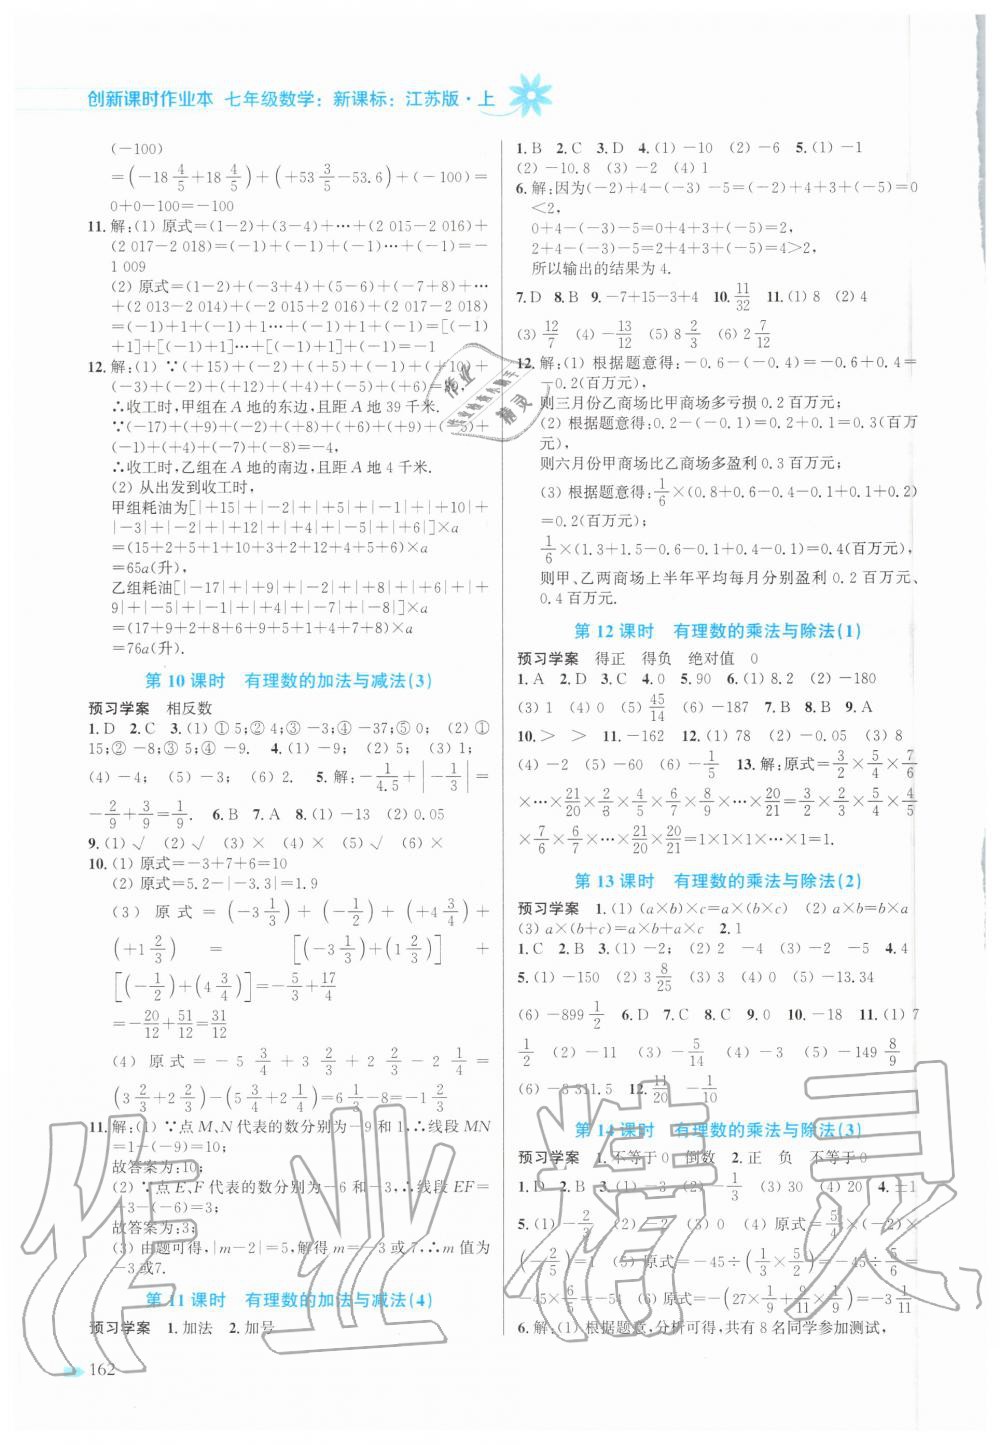 创新课时作业本 七年级数学：新课标：江苏版·上
(－100)
＝(－18 4/5＋18 4/5)＋(＋53 3/5－53.6)＋(－100)＝
0＋0－100＝－100
11. 解:(1) 原式＝(1－2)＋(3－4)＋…＋(2 015－2 016)＋
(2 017－2 018)＝(－1)＋(－1)＋(－1)…＋(－1)＝－
1 009
(2) 原式＝(1－2)＋(－3＋4)＋(5－6)＋(－7＋8)＋…
＋(2 013－2 014)＋(－2 015＋2 016)＋(2 017－2 018)
＝(－1)＋1＋(－1)＋1…＋(－1)＋1＋(－1)＝[(－1)
＋1]＋[(－1)＋1]＋…＋[(－1)＋1]＋(－1)＝－1
12. 解:(1) ∵(＋15)＋(－2)＋(＋5)＋(－1)＋(＋10)＋
(－3)＋(－2)＋(＋12)＋(＋4)＋(－5)＋(＋6)＝39,
∴收工时,甲组在 A 地的东边,且距 A 地 39 千米.
∵(－17)＋(＋9)＋(－2)＋(＋8)＋(＋6)＋(＋9)＋(－5)＋
(－1)＋(＋4)＋(－7)＋(－8)＝－4,
∴收工时,乙组在 A 地的南边,且距 A 地 4 千米.
(2) 从出发到收工时,
甲组耗油为[|＋15|＋|－2|＋|＋5|＋|－1|＋|＋10|＋
|－3|＋|－2|＋|＋12|＋|＋4|＋|－5|＋|＋6|]×a
＝(15＋2＋5＋1＋10＋3＋2＋12＋4＋5＋6)×a
＝65a(升).
乙组耗油[|－17|＋|＋9|＋|－2|＋|＋8|＋|＋6|＋|＋
9|＋|－5|＋|－1|＋|＋4|＋|－7|＋|－8|]×a
＝(17＋9＋2＋8＋6＋9＋5＋1＋4＋7＋8)×a
＝76a(升).
第 10 课时 有理数的加法与减法(3)
预习学案 相反数
1. D 2. C 3. (1) ① 5;② 5;③ －3;④ －37;⑤ 0; (2) ①
15;② －8;③ 5;④ －9. 4. (1) －9; (2) 5; (3) 1;
(4) －4; (5) －4; (6) 2. 5. 解:－1/4.5＋|－1/3|＝
－2/9＋3/9＝1/9. 6. B 7. A 8. (1) －13 (2) 0.05
9. (1) √ (2) √ (3) × (4) × (5) √ (6) ×
10. (1) 原式＝－3＋7＋6＝10
(2) 原式＝5.2－|－3.3|＝1.9
(3) 原式＝(－3 1/3)＋(－1/2)＋(＋4 3/4)＋
(＋1 2/3) ＝ [(－3 1/3)＋(＋1 2/3)] ＋
[(－1/2)＋(＋4 3/4)]＝－5/3＋17/4
＝－20/12＋51/12＝31/12
(4) 原式＝－5 3/4＋3 2/3＋2 2/3－2 1/4＝
(3 2/3＋2 2/3)－(5 3/4＋2 1/4)＝6 1/3－8＝－1 2/3
11. 解:(1) ∵点 M、N 代表的数分别为－9 和 1,∴线段 MN
＝1－(－9)＝10;
故答案为:10;
(2) ∵点 E、F 代表的数分别为－6 和－3,∴线段 EF＝
－3－(－6)＝3;
故答案为:3;
(3) 由题可得,|m－2|＝5,解得 m＝－3 或 7,∴m 值为
－3 或7.
第 11 课时 有理数的加法与减法(4)
预习学案 1. 加法 2. 加号
162
1. B 2. C 3. D 4. (1) －10 (2) －6 5. (1) －1
(2) －10.8 (3) －2 (4) 1
6. 解:因为(－2)＋4－(－3)－5＝(－2)＋4＋3＋(－5)＝0
＜2,
0＋4－(－3)－5＝0＋4＋3＋(－5)＝2,
2＋4－(－3)－5＝2＋4＋3＋(－5)＝4＞2,
所以输出的结果为 4.
7. D 8. B 9. －7＋15－3＋4 10. 11/32 11. (1) 8 (2) 4
(3) 12/7 (4) －13/12 (5) 8 2/3 (6) 2 7/12
12. 解:(1) 根据题意得:－0.6－(－0.4)＝－0.6＋0.4＝
－0.2(百万元),
则三月份乙商场比甲商场多亏损 0.2 百万元;
(2) 根据题意得:0.2－(－0.1)＝0.2＋0.1＝0.3(百万
元),
则六月份甲商场比乙商场多盈利 0.3 百万元;
(3) 根据题意得:1/6×(0.8＋0.6－0.4－0.1＋0.1＋0.2)
＝0.2(百万元),
1/6×(1.3＋1.5－0.6－0.1＋0.4－0.1)＝0.4(百万元),
则甲、乙两商场上半年平均每月分别盈利 0.2 百万元、
0.4 百万元.
第 12 课时 有理数的乘法与除法(1)
预习学案 得正 得负 绝对值 0
1. A 2. D 3. C 4. 0 5. 90 6. (1) 8 (2) －180
(3) 1 (4) 0 (5) 45/14 (6) －187 7. B 8. B 9. A
10. ＞ ＞ 11. －162 12. (1) 78 (2) －0.05 (3) 8
(4) －2 (5) －60 (6) －1/5 13. 解:原式＝3/2×5/4×7/6
×…×21/20×2/3×4/5×6/7×8/9×…×20/21＝3/2×2/3×5/4×4/5
×7/6×6/7×…×21/20×20/21＝1×1×1×…×1＝1.
第 13 课时 有理数的乘法与除法(2)
预习学案 1. (1) (a×b)×c＝a×(b×c) (2) a×b＝b×a
(3) a×(b＋c)＝a×b＋a×c 2. 1
1. C 2. B 3. (1) －2; (2) 2 －4 (3) －2 －5 4. 4
5. (1) －150 (2) 3 8/25 (3) 3 (4) 0 (5) －13.34
(6) －899 1/2 6. D 7. C 8. C 9. 0 10. －18 11. (1) 7
1/2 (2) －11 (3) －5/14 (4) －3 (5) －149 8/9
(6) －8 311.5 12. 11/20 －1/10
第 14 课时 有理数的乘法与除法(3)
预习学案 1. 不等于 0 倒数 2. 正 负 不等于 0
1. D 2. B 3. (1) －18 (2) －1/3 (3) 30 (4) 20 4. ±1
5. (1) －2/3 (2) －2 (3) 0 (4) 原式＝5/4×(－2)×
(－2/5)＝1 (5) 原式＝－45÷(1/3×5/2)＝－45÷
5/6＝－54 (6) 原式＝－(27×1/9＋9/11×1/9)＝－3 1/11
6. 解:(1) 根据题意,分析可得,共有 8 名同学参加测试,
作业精灵